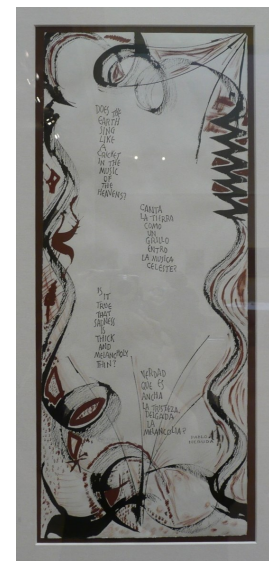 DOES THE
EARTH
SING
LIKE
A
CRICKET
IN THE
MUSIC
OF
THE
HEAVENS?
CANTA
LA TIERRA
COMO
UN
GRILLO
ENTRO
LA MUSICA
CELESTE?
IS IT
TRUE
THAT
SADNESS
IS
THICK
AND
MELANCHOLY
THIN?
VERDAD
QUE ES
ANCHA
LA TRISTEZA,
DELGADA
LA
MELANCOLIA?
PABLO
NERUDA